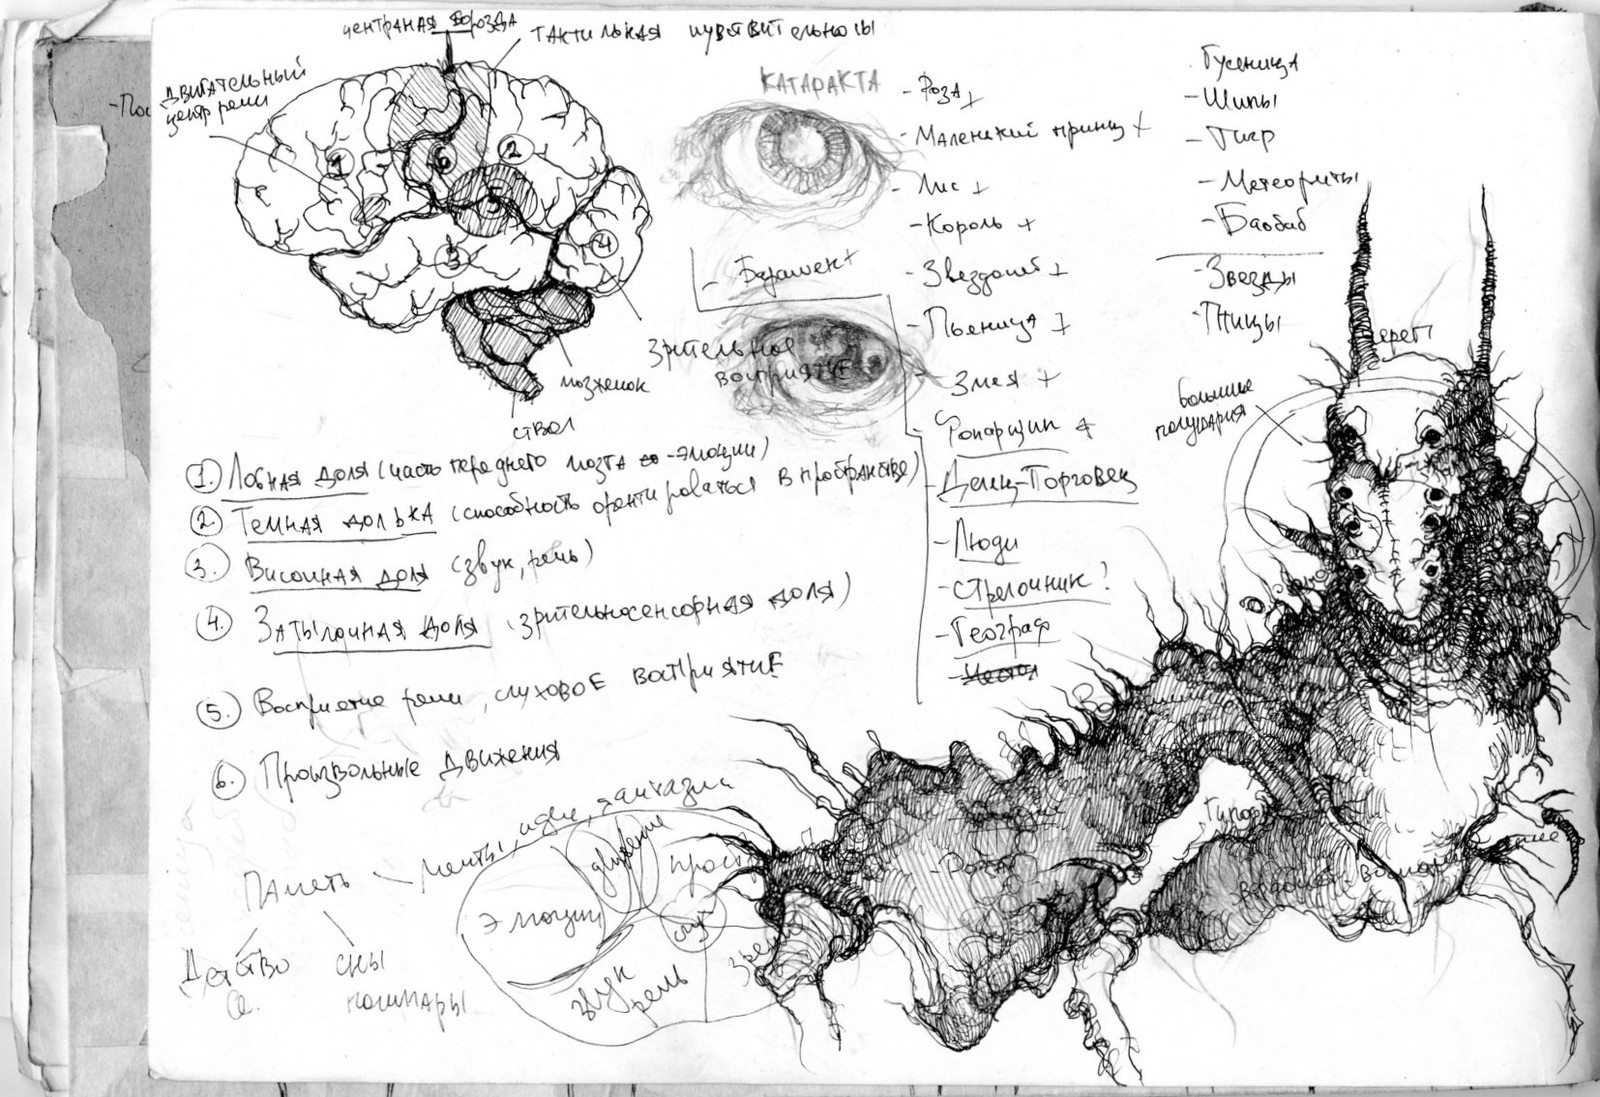 центраная борозда
тактилькая чувствительносы
двигательный
центр речи
-Пос
КАТАРАКТА
1
6
2
5
3
4
мозжечок
ствол
Зрительное
восприятие
1. Лобная доля (часть переднего мозга -эмоции)
2. Темная долька (способность орентироваться в пространстве)
3. Височная доля (звук, речь)
4. Затылочная доля (зрительносенсорная доля)
5. Восприятие речи, слуховое восприятие
6. Произвольные движения
Память
мечты, идеи, фантазии
Детство
сны
кошмары
эмоции
движение
прос
слух
звук
речь
- Роза +
- Маленький принц +
- Лис +
- Король +
- Барашек +
- Звездочёт +
- Пьяница +
- Змея +
Фонарщик +
- Делец-Торговец
- Люди
- Стрелочник?
- Географ
Гусеница
- Шипы
- Тигр
- Метеориты
- Баобаб
- Звезды
- Птицы
череп
большие
полушария